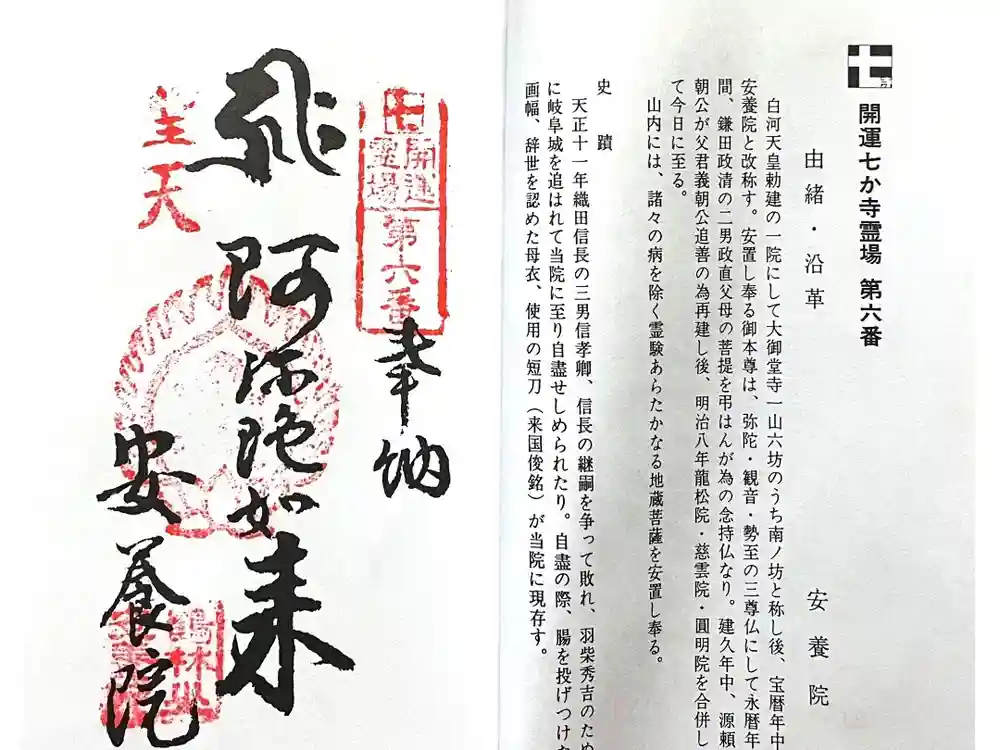 開運七か寺霊場 第六番
由緒・沿革 安養院
白河天皇勅建の一院にして大御堂寺一山六坊のうち南ノ坊と称し後、宝暦年中
安養院と改称す。安置し奉る御本尊は、弥陀・観音・勢至の三尊仏にして永暦年
間、鎌田政清の二男政直父母の菩提を弔はんが為の念持仏なり。建久年中、源頼
朝公が父君義朝公追善の為再建し後、明治八年龍松院・慈雲院・圓明院を合併し
て今日に至る。
山内には、諸々の病を除く霊験あらたかなる地蔵菩薩を安置し奉る。
史蹟
天正十一年織田信長の三男信孝卿、信長の継嗣を争って敗れ、羽柴秀吉のため
に岐阜城を追はれて当院に至り自盡せしめられたり。自盡の際、腸を投げつけた
画幅、辞世を認めた母衣、使用の短刀(来国俊銘)が当院に現存す。
七
開運
霊場
第六番
奉納
阿弥陀如来
安養院